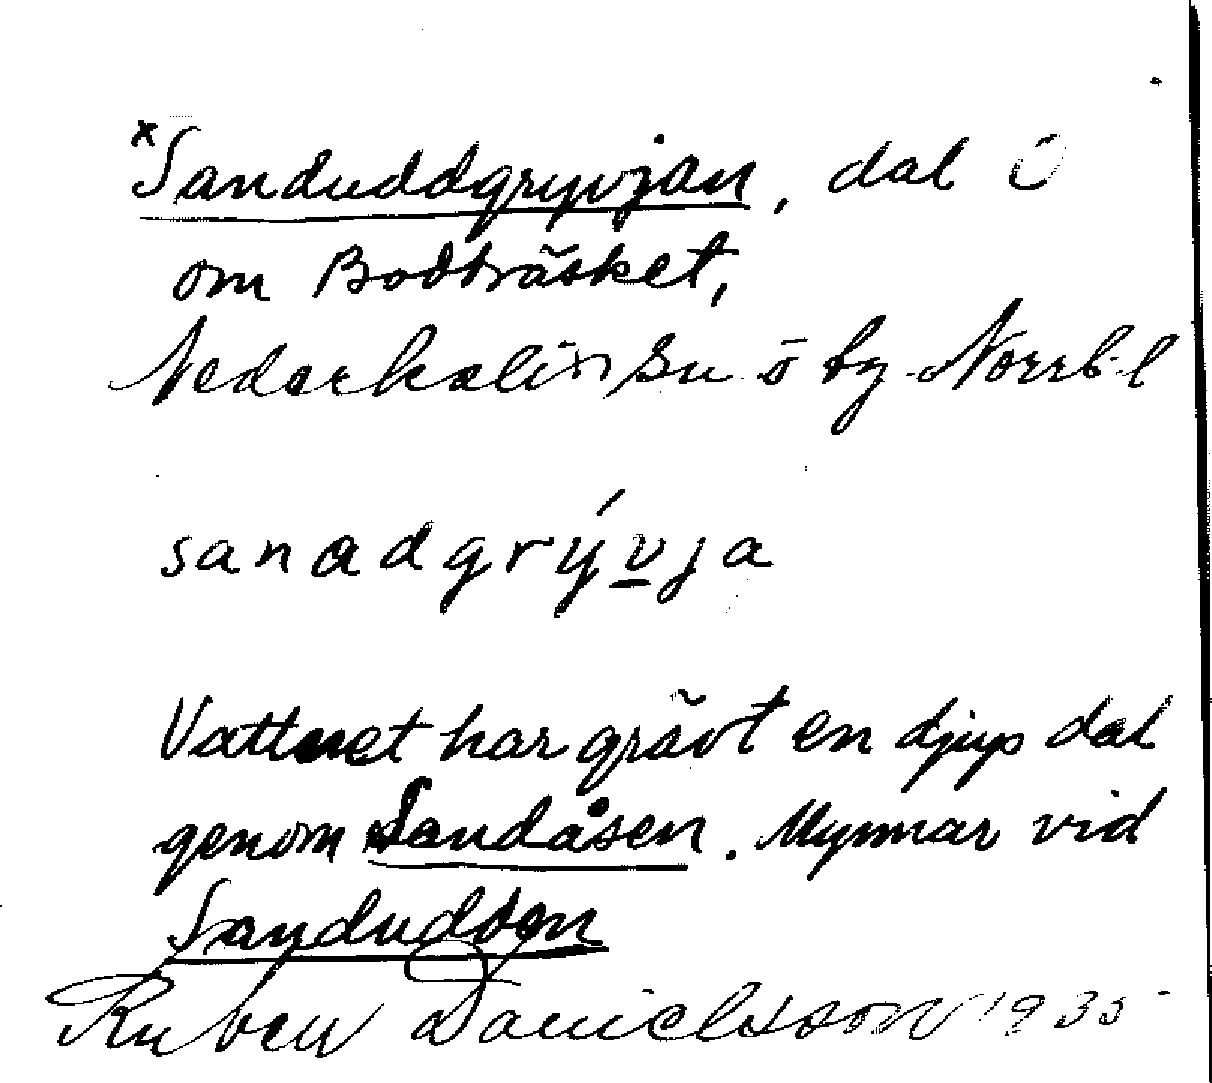 *Sanduddgryvjan, dal Ö
om Bodträsket,
Nederkalix sn ö by Norrb.l
sanadgrývja
Vattnet har grävt en djup dal
genom Sandåsen. Mynnar vid
Sandudden
Ruben Danielsson 1935